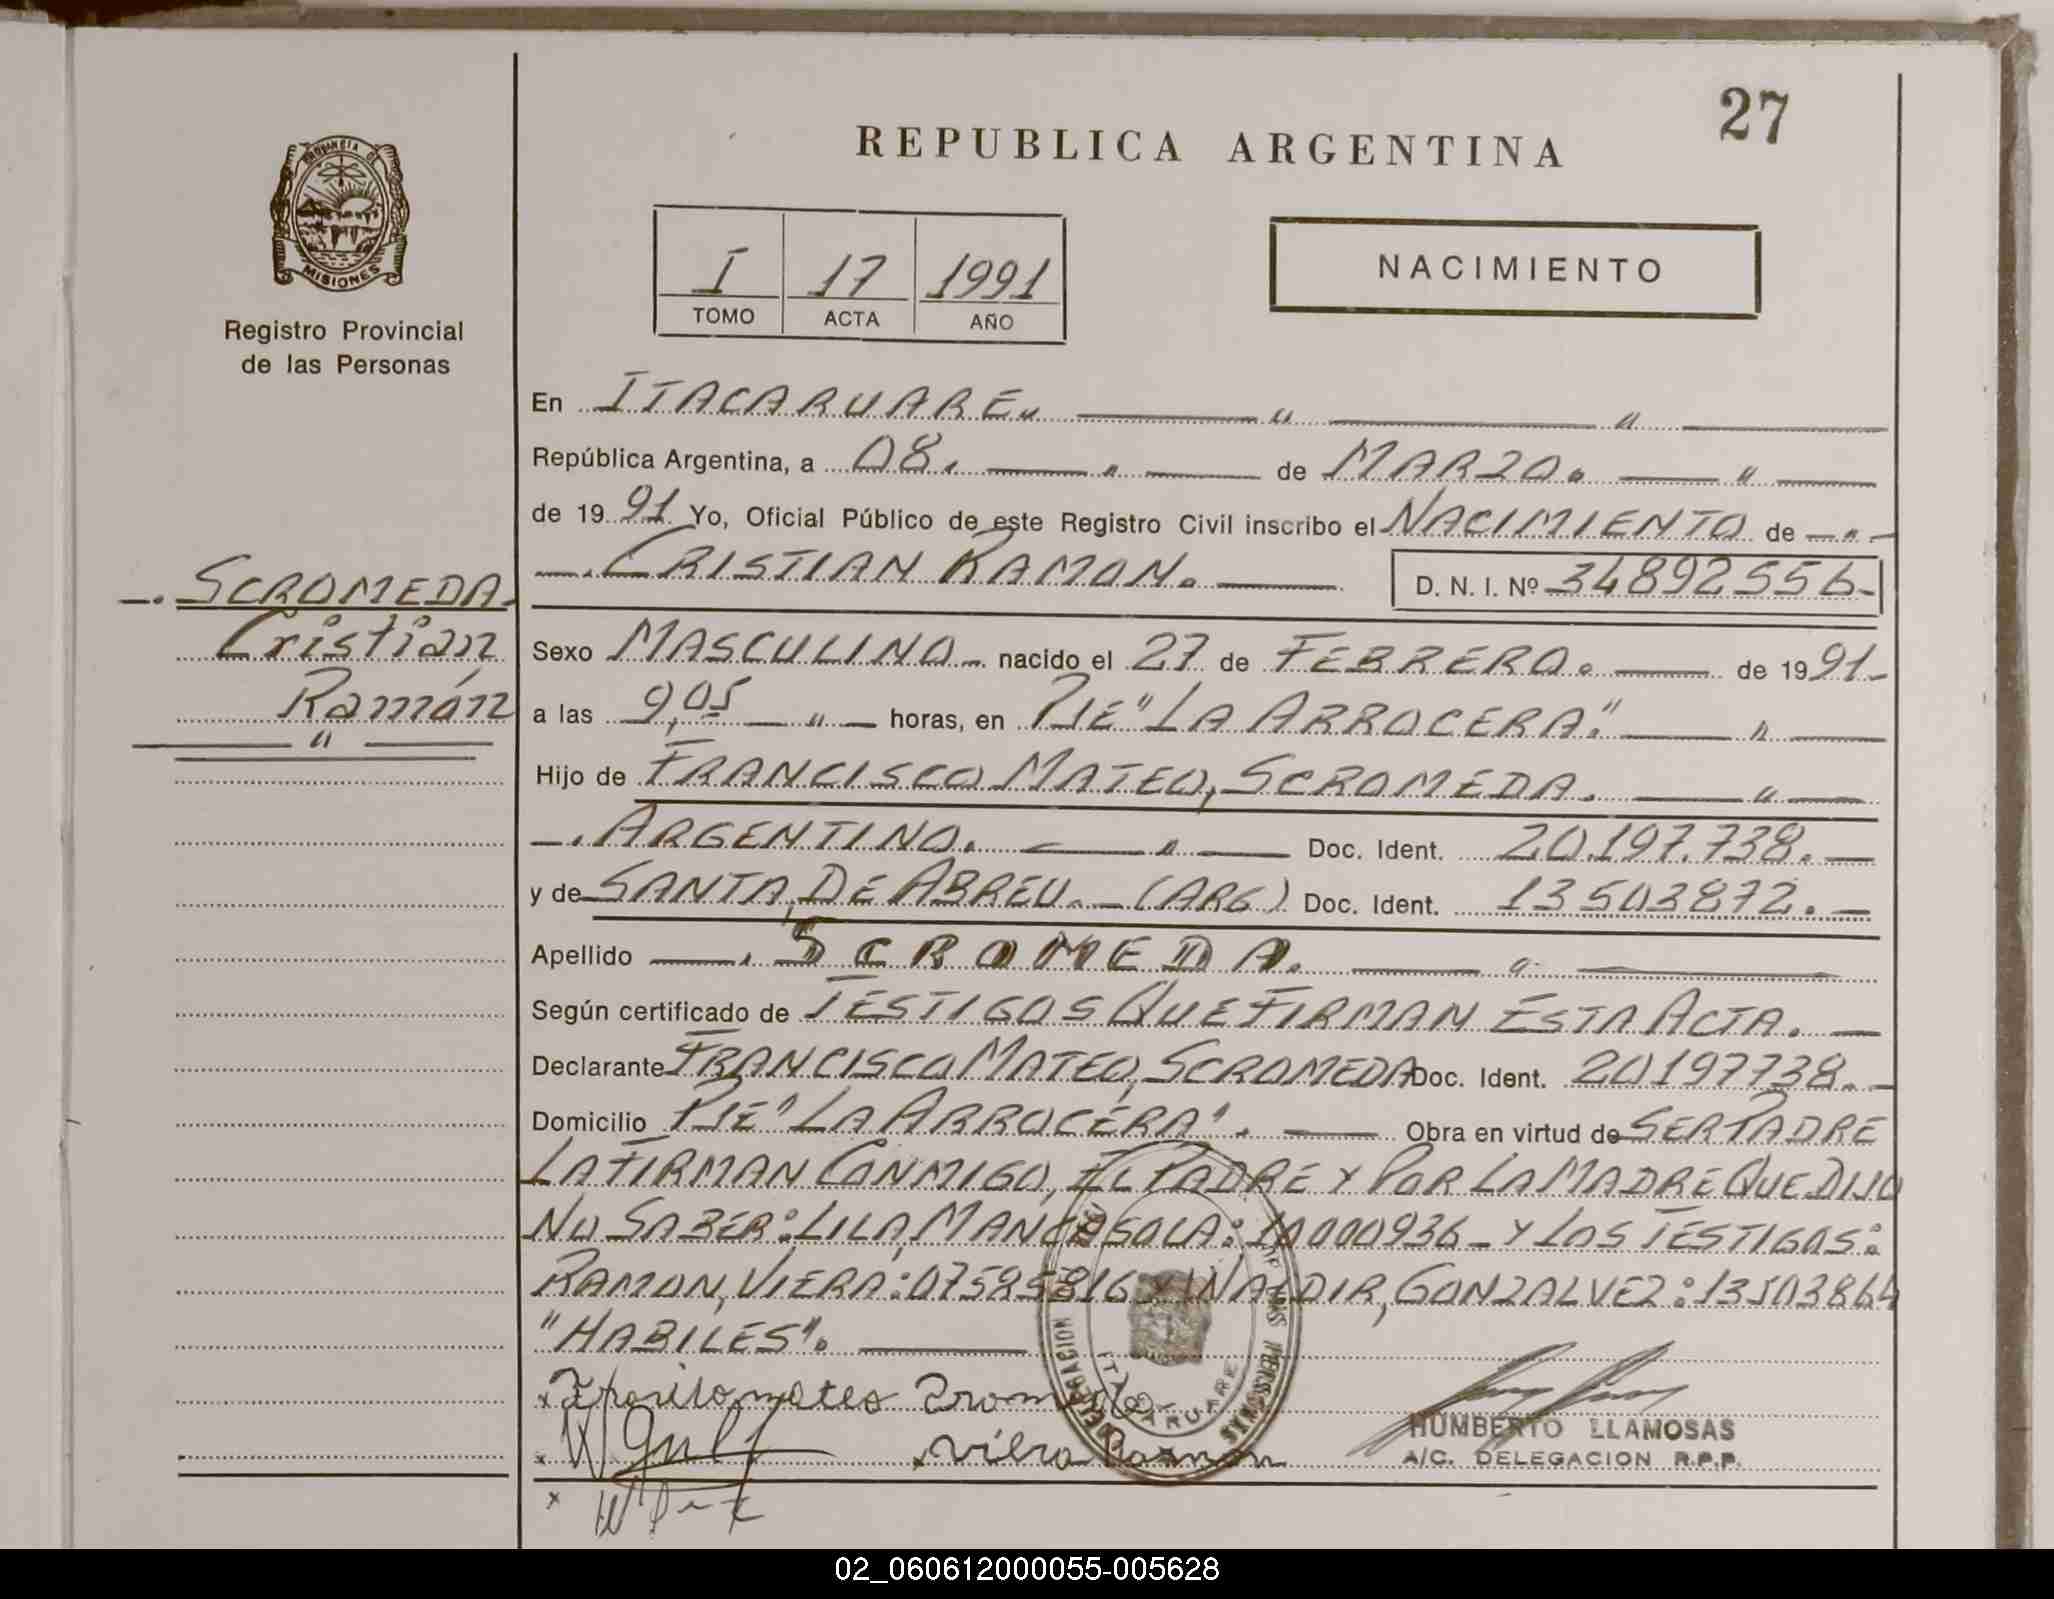 27
REPUBLICA ARGENTINA
PROVINCIA DE
MISIONES
Registro Provincial
de las Personas
I 17 1991
TOMO ACTA AÑO
NACIMIENTO
En ITACARUARE.
República Argentina, a 08. de MARZO.
de 19 91 Yo, Oficial Público de este Registro Civil inscribo el NACIMIENTO de
CRISTIAN RAMON. D. N. I. Nº 34892556-
SCROMEDA.
Cristian
Ramón
Sexo MASCULINO nacido el 27 de FEBRERO. de 19 91-
a las 9,05 horas, en PJE "LA ARROCERA".
Hijo de FRANCISCO MATEO, SCROMEDA.
ARGENTINO. Doc. Ident. 20.197.738.
y de SANTA, DE ABREU. (ARG) Doc. Ident. 13503872.
Apellido SCROMEDA.
Según certificado de TESTIGOS QUE FIRMAN ESTA ACTA.
Declarante FRANCISCO MATEO, SCROMEDA Doc. Ident. 20197738.
Domicilio PJE "LA ARROCERA". Obra en virtud de SER PADRE
LA FIRMAN CONMIGO, EL PADRE Y POR LA MADRE QUE DIJO
NO SABER: LILA, MANCASOLA: 10000936 - Y LOS TESTIGOS:
RAMON, VIERA: 07585816 Y WALDIR, GONZALVEZ: 13503864
"HABILES".
DELEGACION
ITACARUARE
HUMBERTO LLAMOSAS
A/C. DELEGACION R.P.P.
viera Ramon
02_060612000055-005628